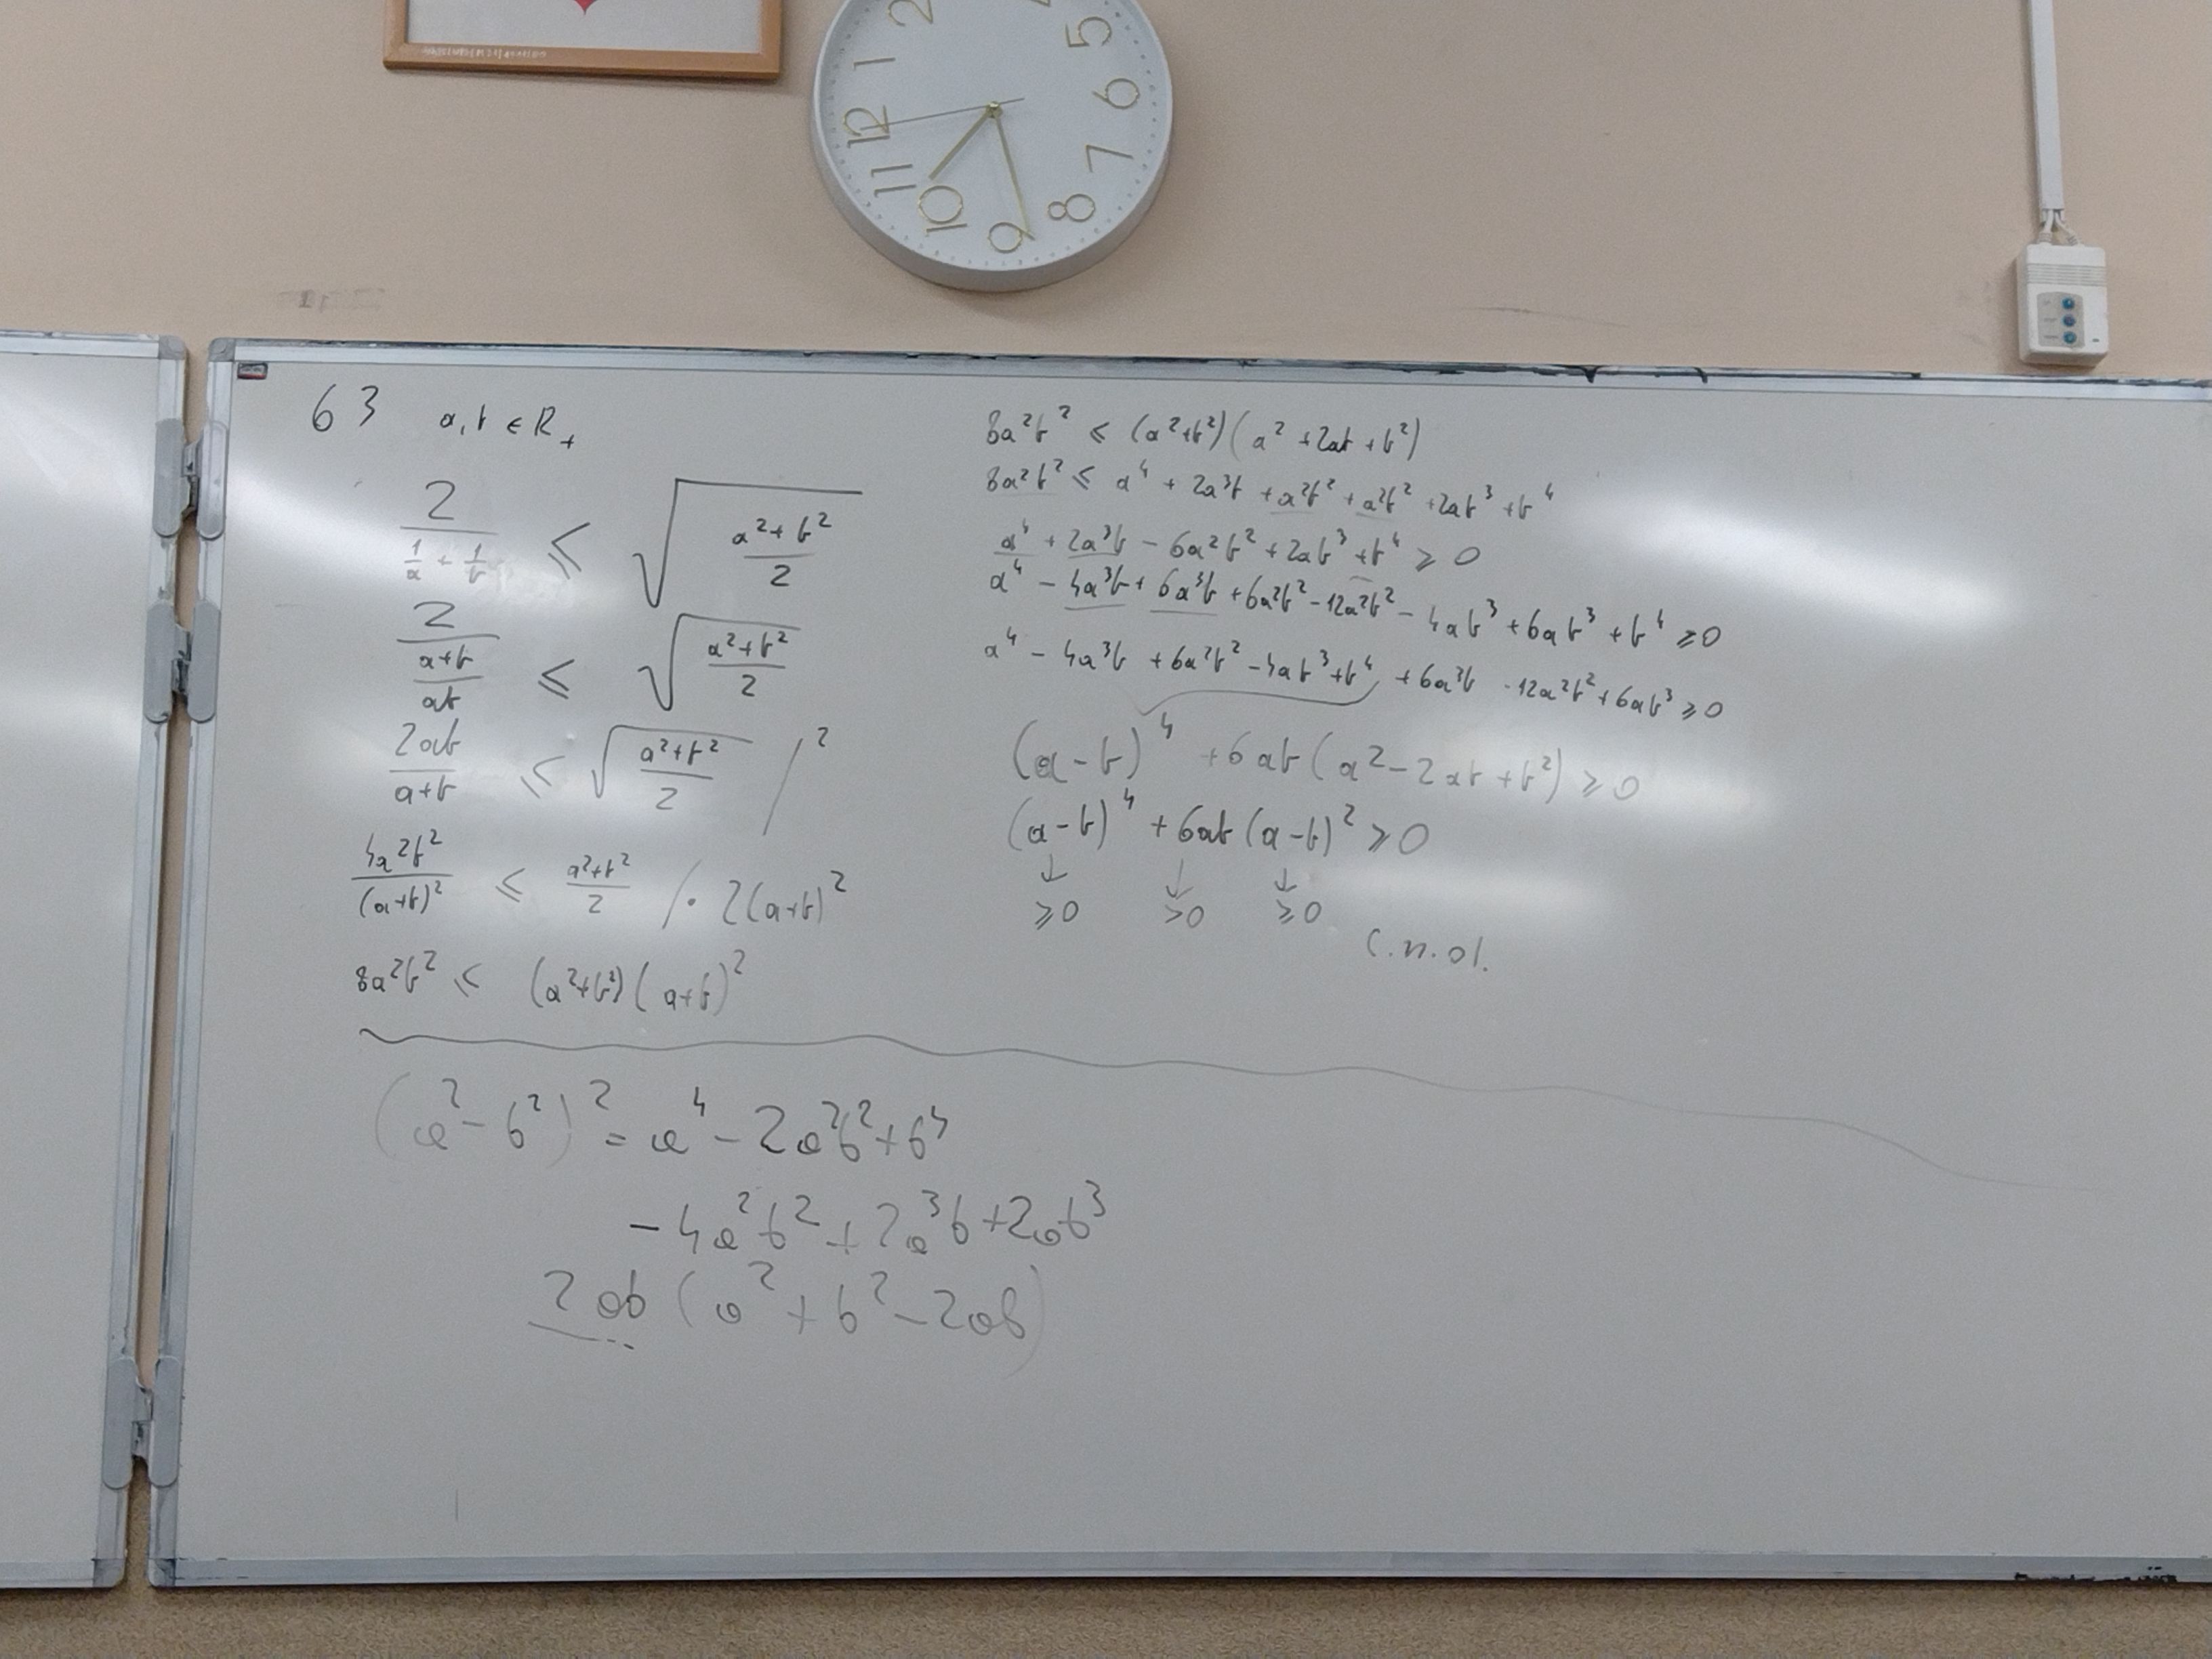 2 5
1 6
12 7
11 10 9 8
63 a, b ∈ R₊
2/(1/a + 1/b) ≤ √((a²+b²)/2)
2/((a+b)/ab) ≤ √((a²+b²)/2)
2ab/(a+b) ≤ √((a²+b²)/2) /²
4a²b²/(a+b)² ≤ (a²+b²)/2 /· 2(a+b)²
8a²b² ≤ (a²+b²)(a+b)²
8a²b² ≤ (a²+b²)(a² + 2ab + b²)
8a²b² ≤ a⁴ + 2a³b + a²b² + a²b² + 2ab³ + b⁴
a⁴ + 2a³b − 6a²b² + 2ab³ + b⁴ ≥ 0
a⁴ − 4a³b + 6a³b + 6a²b² − 12a²b² − 4ab³ + 6ab³ + b⁴ ≥ 0
a⁴ − 4a³b + 6a²b² − 4ab³ + b⁴ + 6a³b − 12a²b² + 6ab³ ≥ 0
(a−b)⁴ + 6ab(a² − 2ab + b²) ≥ 0
(a−b)⁴ + 6ab(a−b)² ≥ 0
↓ ↓ ↓
≥0 >0 ≥0
c.n.d.
(a² − b²)² = a⁴ − 2a²b² + b⁴
− 4a²b² + 2a³b + 2ab³
2ab(a² + b² − 2ab)